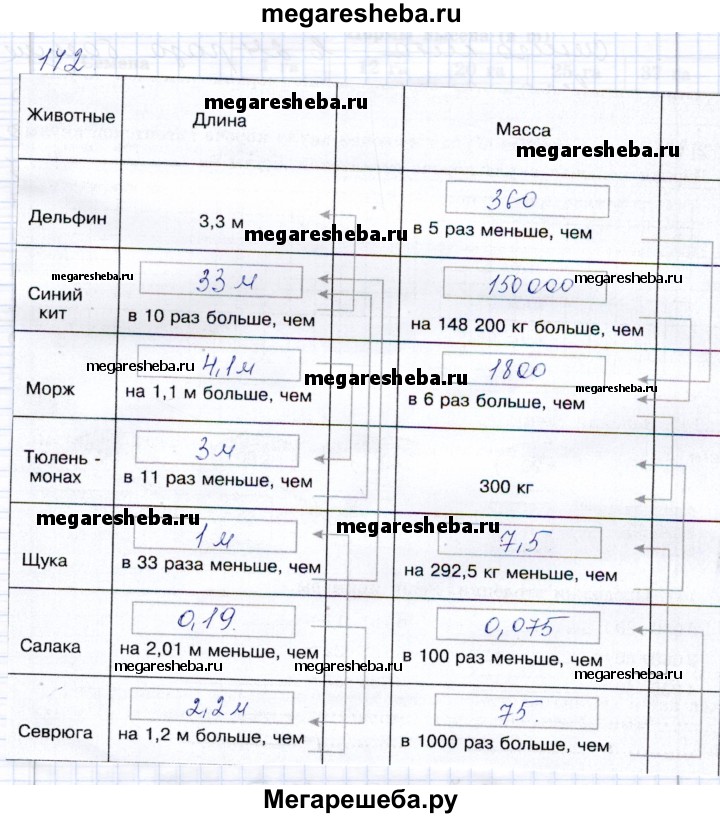 megaresheba.ru
142
Животные
Длина
megaresheba.ru
Масса
megaresheba.ru
Дельфин
3,3 м
360
в 5 раз меньше, чем
megaresheba.ru
megaresheba.ru
Синий
кит
33 м
в 10 раз больше, чем
150000
megaresheba.ru
на 148 200 кг больше, чем
Морж
megaresheba.ru
4,1 м
на 1,1 м больше, чем
megaresheba.ru
1800
megaresheba.ru
в 6 раз больше, чем
Тюлень -
монах
3 м
в 11 раз меньше, чем
300 кг
megaresheba.ru
Щука
1 м
в 33 раза меньше, чем
megaresheba.ru
7,5
на 292,5 кг меньше, чем
Салака
0,19
на 2,01 м меньше, чем
megaresheba.ru
megaresheba.ru
0,075
в 100 раз меньше, чем
megaresheba.ru
Севрюга
2,2 м
на 1,2 м больше, чем
75
в 1000 раз больше, чем
Мегарешеба.ру